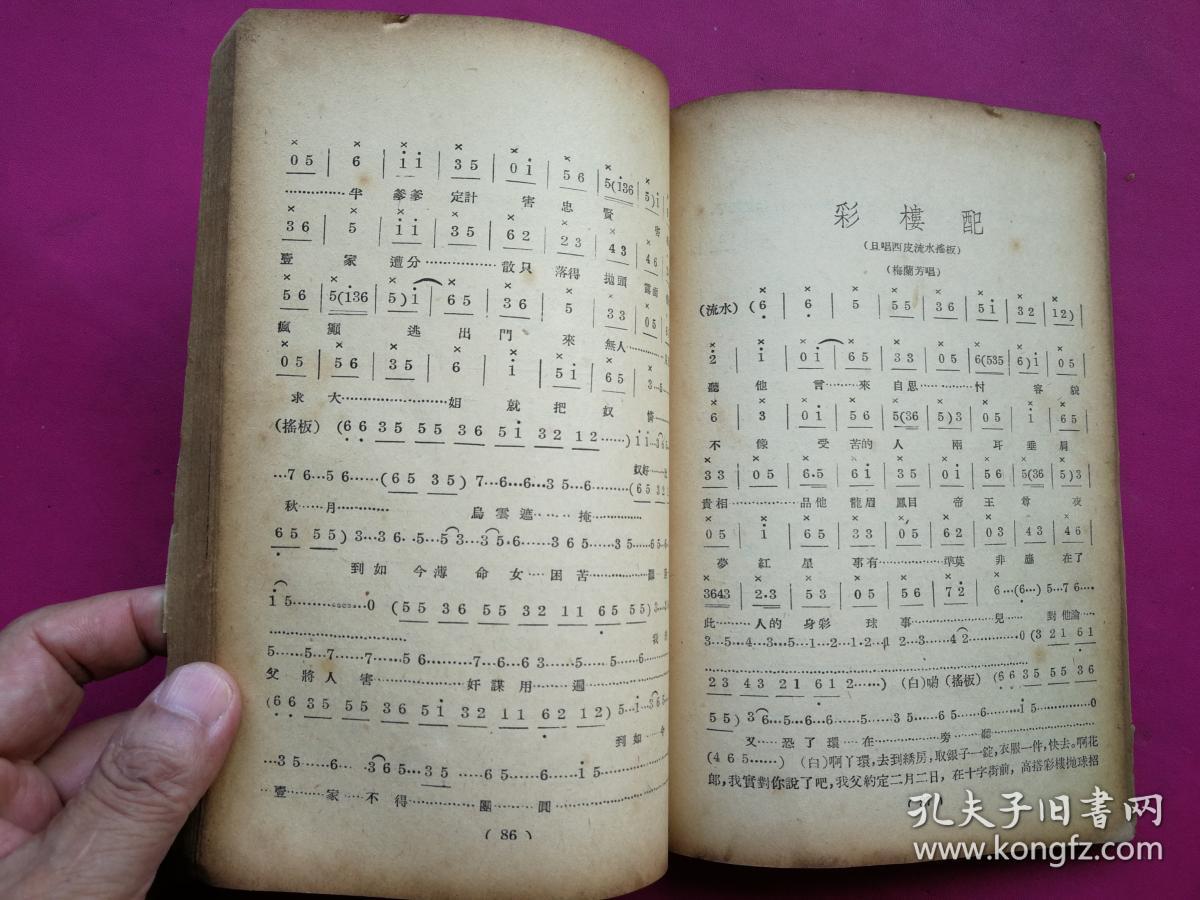 05 | 6 | i i | 3 5 | 0 i | 5 6 | 5(i36 | 5) i
………… 半 爹爹 定計 害 忠 賢 害
36 | 5 | i i | 35 | 62 | 23 | 43 | 46
壹 家 遭分………… 散只 落得 拋頭 露面
56 | 5(i36 | 5) i | 65 | 36 | 5 | 33 | 05
瘋 顚 逃 出 門 來 無人………
05 | 56 | 35 | 6 | i | 5i | 65 | 3…5…
求大………… 姐 就 把 奴
(搖板) (66 35 55 36 5i 32 12……) i i…36
奴好……
…76…56……(65 35) 7…6…6…35…6………(65 32
秋……月………… 烏雲遮……掩…………
65 55) 3…36…5…53…35…6……365…35……65…4
到如 今薄 命女……困苦……
i 5…………0 (55 36 55 32 11 65 55) 3…3
我
5……5…7……7……56……7…6…63……5……5……6
父 將人 害……… 奸謀用……過
(66 35 55 36 5i 32 11 62 12) 5…i…365
到如……今
…35……6……365…35……65……6……i5
壹……家…不得……團……圓
(86)
彩樓配
(旦唱西皮流水搖板)
(梅蘭芳唱)
(流水) (6 | 6 | 5 | 55 | 36 | 5i | 32 | 12) |
2 | i | 0 i | 65 | 33 | 05 | 6(535 | 6) i | 05
聽 他 言………來 自思……忖 容 貌
6 | 3 | 0 i | 56 | 5(36 | 5) 3 | 05 | i | 65
不 像 受 苦的 人 兩 耳 垂 肩
33 | 05 | 6·5 | 6i | 35 | 0i | 56 | 5(36 | 5) 3
貴相………品他 龍眉 鳳目 帝 王 尊 夜
05 | i | 65 | 33 | 05 | 62 | 03 | 43 | 46
夢 紅 星 事有………準莫 非 應 在了
3643 | 2·3 | 53 | 05 | 56 | 72 | 6…(6…) 5…76…
此……人的 身彩 球 事……兒…… 對他論
3…5…4…5…3…5…1…2…1…2 2…3……42……0 (3 21 61
23 43 21 612……) (白) 喲 (搖板) (66 35 55 36
55) 36…5…6…5……35…65…6……i5………0
又……恐了環…在………旁……聽
(465……) (白) 啊丫環,去到綉房,取銀子一錠,衣服一件,快去。啊花
郎,我實對你說了吧,我父約定二月二日,在十字街前,高搭彩樓拋球招
孔夫子旧书网
www.kongfz.com